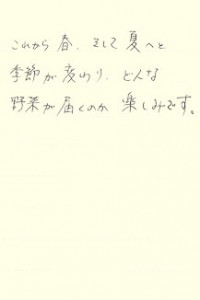 これから 春、そして 夏へと
季節が 変わり、どんな
野菜が 届くのか 楽しみです。